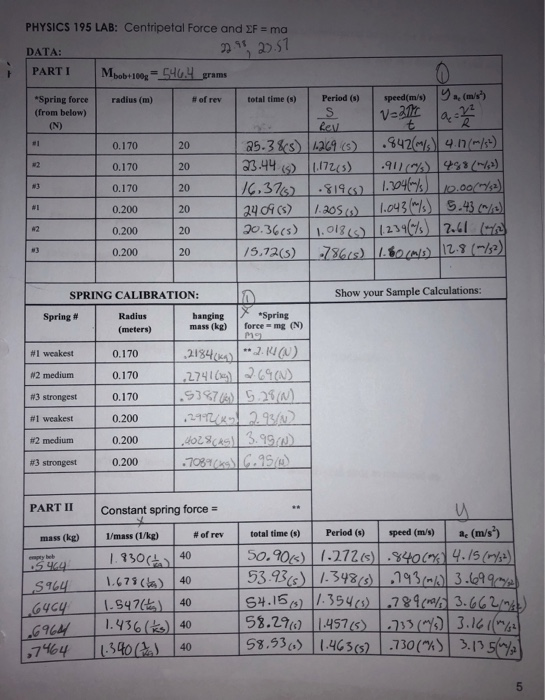 PHYSICS 195 LAB: Centripetal Force and ΣF = ma
DATA:
PART I M bob+100g = 546.4 grams ①
*Spring force (from below) (N) radius (m) # of rev total time (s) Period (s) S/Rev speed(m/s) V=2πr/t y a, (m/s²) a_c = v²/R
#1 0.170 20 25.38(s) 1.269(s) .842(m/s) 4.17(m/s²)
#2 0.170 20 23.44(s) 1.172(s) .911(m/s) 4.88(m/s²)
#3 0.170 20 16.37(s) .819(s) 1.304(m/s) 10.00(m/s²)
#1 0.200 20 24.09(s) 1.205(s) 1.043(m/s) 5.43(m/s²)
#2 0.200 20 20.36(s) 1.018(s) 1.234(m/s) 7.61(m/s²)
#3 0.200 20 15.72(s) .786(s) 1.60(m/s) 12.8(m/s²)
SPRING CALIBRATION: ① Show your Sample Calculations:
Spring # Radius (meters) hanging mass (kg) x *Spring force = mg (N) mg
#1 weakest 0.170 .2184(kg) ** 2.14(N)
#2 medium 0.170 .2741(kg) 2.69(N)
#3 strongest 0.170 .5387(kg) 5.28(N)
#1 weakest 0.200 .2992(kg) 2.93(N)
#2 medium 0.200 .4028(kg) 3.95(N)
#3 strongest 0.200 .7089(kg) 6.95(N)
PART II Constant spring force = **
x y
mass (kg) 1/mass (1/kg) # of rev total time (s) Period (s) speed (m/s) a_c (m/s²)
empty bob .5464 1.830(1/kg) 40 50.90(s) 1.272(s) .840(m/s) 4.15(m/s²)
.5964 1.678(1/kg) 40 53.93(s) 1.348(s) .793(m/s) 3.699(m/s²)
.6464 1.547(1/kg) 40 54.15(s) 1.354(s) .789(m/s) 3.662(m/s²)
.6964 1.436(1/kg) 40 58.29(s) 1.457(s) .733(m/s) 3.161(m/s²)
.7464 1.340(1/kg) 40 58.53(s) 1.463(s) .730(m/s) 3.135(m/s²)
5